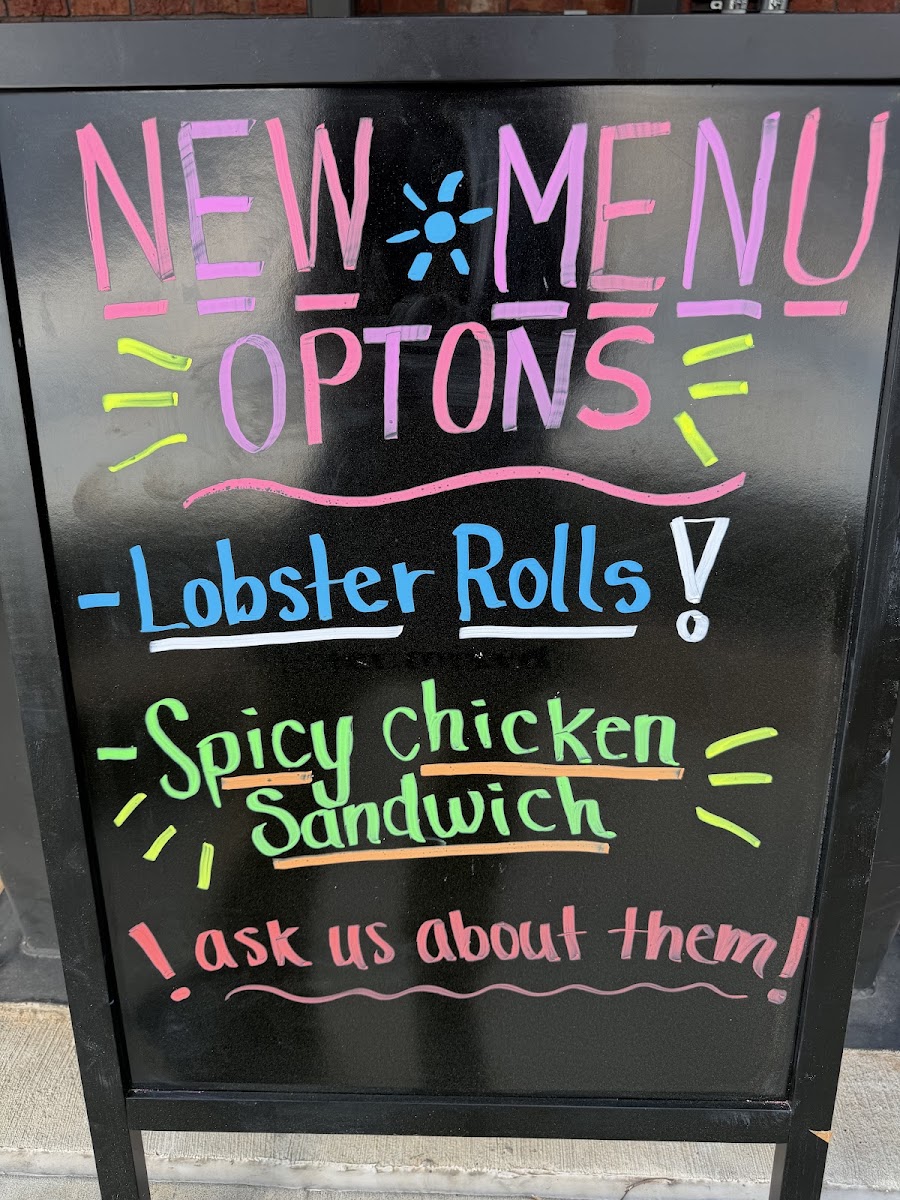 NEW MENU
OPTONS
-Lobster Rolls!
-Spicy chicken
Sandwich
!ask us about them!